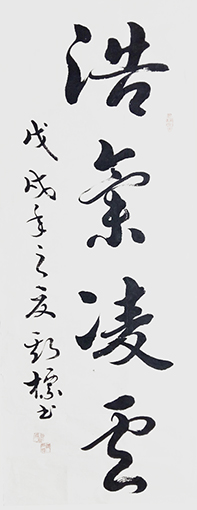 浩氣凌雲
戊戌年之夏
書